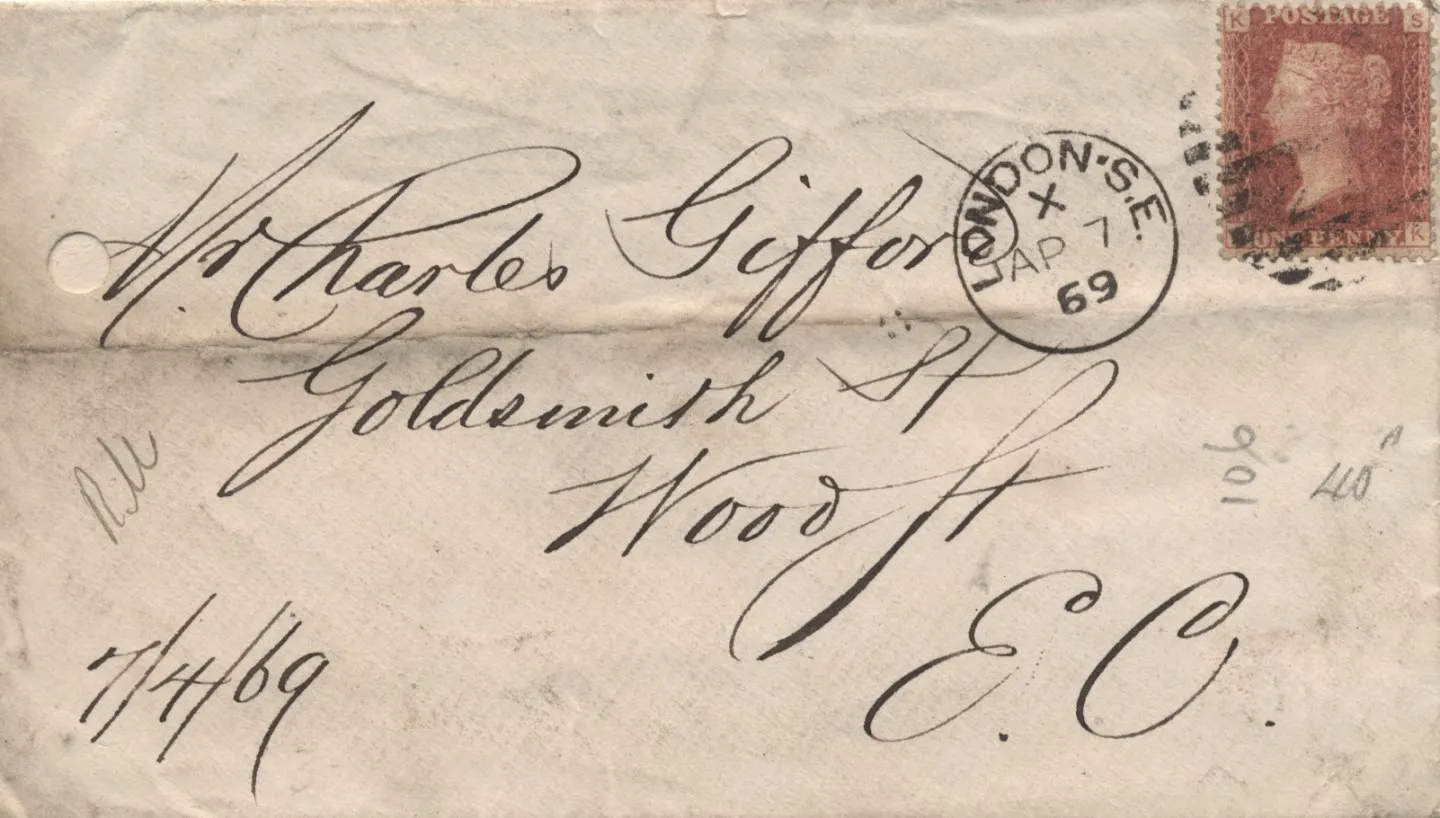 K POSTAGE S
ONE PENNY K
LONDON·S.E.
X
AP 7
69
Mr Charles Gifford
Goldsmith St
Wood St
E. C.
7/4/69
106
40